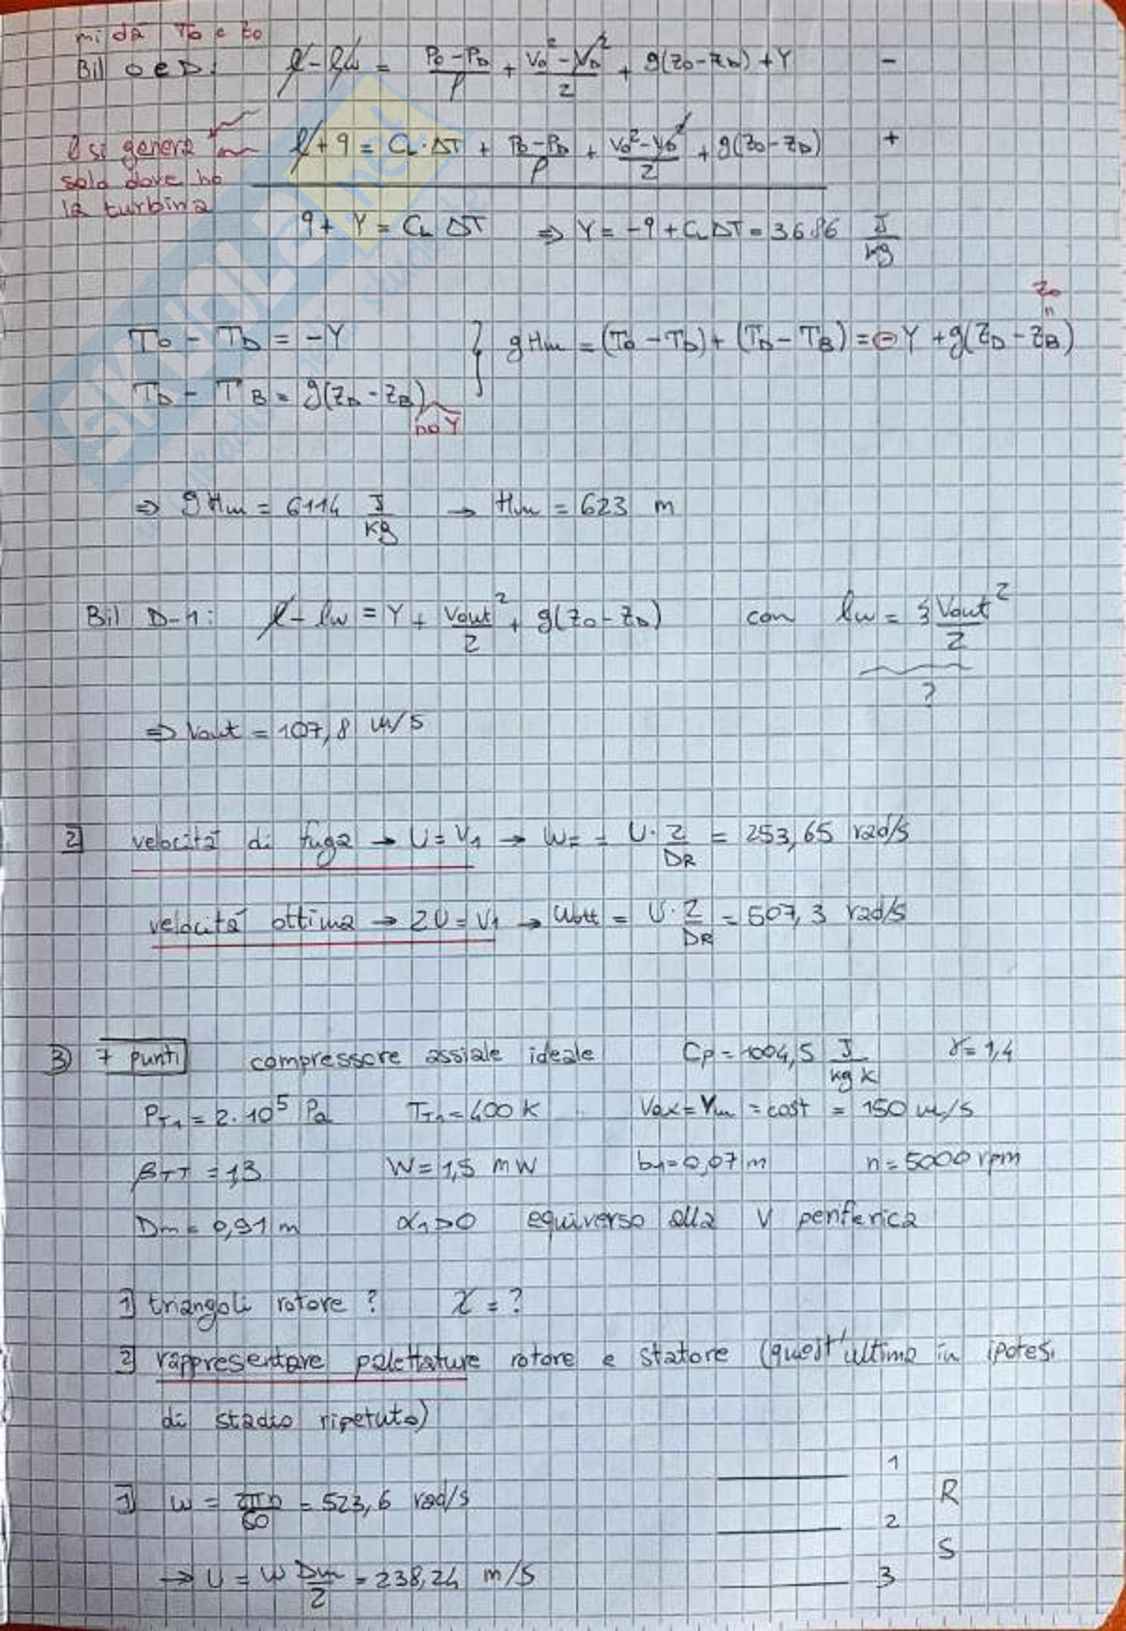 mi dà T0 e t0
Bil 0 e D: l - lw = P0-PD/ρ + V0²-VD²/2 + g(z0-zD) + Y -
l si genera l + q = CL·ΔT + P0-PD/ρ + V0²-VD²/2 + g(z0-zD) +
solo dove ho
la turbina
q + Y = CL ΔT ⇒ Y = -q + CL ΔT = 3686 J/kg
z0
T0 - TD = -Y } gHm = (T0 - TD) + (TD - TB) = -Y + g(ZD - ZB)
TD - TB = g(ZD - ZB)
no Y
⇒ gHm = 6114 J/kg → Hm = 623 m
Bil D-1: l - lw = Y + Vout²/2 + g(z0 - zD) con lw = ξ Vout²/2
?
⇒ Vout = 107,8 m/s
2] velocità di fuga → U = V1 → WF = U·2/DR = 253,65 rad/s
velocità ottima → 2U = V1 → Wott = U·2/DR = 507,3 rad/s
3) 7 punti compressore assiale ideale Cp = 1004,5 J/kg K γ = 1,4
PT1 = 2·10⁵ Pa TT1 = 400 K Vax = Vm = cost = 150 m/s
βTT = 1,3 W = 1,5 MW b1 = 0,07 m n = 5000 rpm
Dm = 0,91 m α1 > 0 equiverso alla V periferica
1] triangoli rotore ? χ = ?
2] rappresentare palettature rotore e statore (quest'ultimo in ipotesi
di stadio ripetuto)
1
1] ω = 2πn/60 = 523,6 rad/s R
2
S
→ U = ω Dm/2 = 238,24 m/s 3
SKUOLA.net